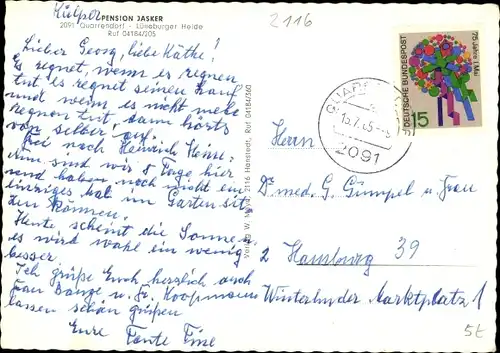 Hülper
2116
PENSION JASKER
2091 Quarrendorf - Lüneburger Heide
Ruf 04184/205
Lieber Georg, liebe Käthe!
Es regnet, wenn es regnen
tut es regnet seinen Lauf
und wenn es nicht mehr
regnen tut, dann hörts
von selber auf.
Frei nach Heinrich Heine.
Nun sind wir 8 Tage hier
und haben noch nicht ein
einziges mal im Garten sit
zen können.
Heute scheint die Sonne
es wird wohl ein wenig
besser.
Ich grüße Euch herzlich auch
Frau Bange u. Fr. Koopmann
lassen schön grüßen
Eure Tante Fine
Verlag W. 2116 Hanstedt, Ruf 04184/360
DEUTSCHE BUNDESPOST
75 Jahre 1. Mai
15
2091
Herrn
Dr. med. G. Gümpel u. Frau
2 Hamburg 39
Winterhuder Marktplatz 1
5t